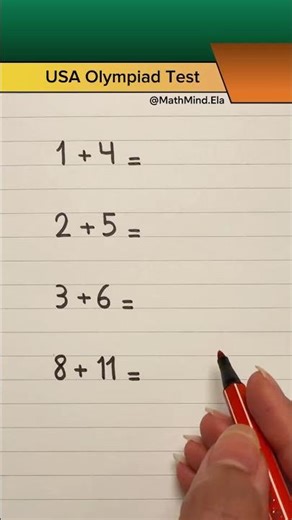 USA Olympiad Test
@MathMind.Ela
1 + 4 =
2 + 5 =
3 + 6 =
8 + 11 =